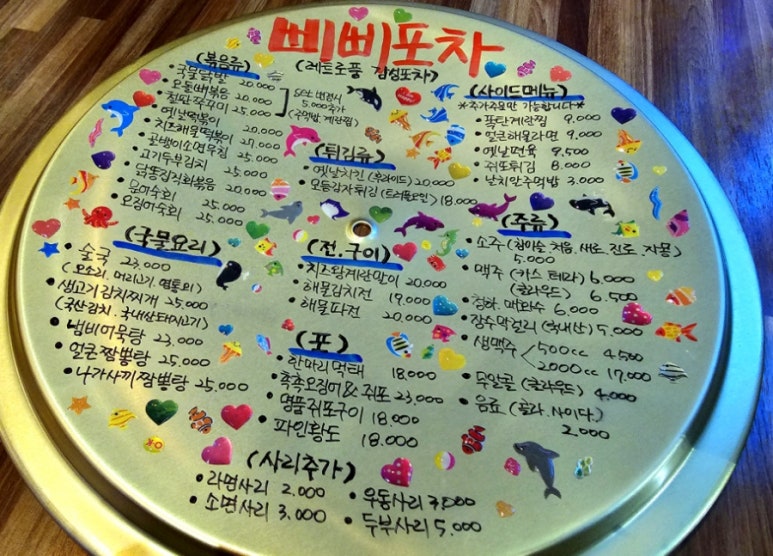 삐삐포차
(레트로풍 감성포차)
(볶음류)
국물닭발 20,000
오돌뼈볶음 20,000
철판쭈꾸미 25,000
Set 변경시
5,000추가
(주먹밥, 계란찜)
옛날떡볶이 20,000
치즈해물떡볶이 27,000
골뱅이소면무침 25,000
고기두부김치 25,000
닭똥집직화볶음 20,000
문어숙회 25,000
오징어숙회 25,000
(튀김류)
옛날치킨 (후라이드) 20,000
모듬감자튀김 (트러플오일) 18,000
(사이드메뉴)
*추가주문만 가능합니다*
뚝탄계란찜 9,000
얼큰해물라면 9,000
옛날쩐육 9,500
쥐포튀김 8,000
날치알주먹밥 3,000
(국물요리)
술국 23,000
(오소리, 머리고기, 염통외)
생고기김치찌개 25,000
(국산김치, 국내산돼지고기)
냄비어묵탕 23,000
얼큰짬뽕탕 25,000
나가사끼짬뽕탕 25,000
(전.구이)
치즈왕계란말이 20,000
해물김치전 19,000
해물파전 20,000
(포)
한마리먹태 18,000
촉촉오징어 & 쥐포 23,000
명품쥐포구이 18,000
파인황도 18,000
(주류)
소주 (참이슬, 처음, 새로, 진로, 자몽)
5,000
맥주 (카스 테라) 6,000
(클라우드) 6,500
청하, 매화수 6,000
장수막걸리 (국내산) 5,000
생맥주 500cc 4500
2000cc 17,000
무알콜 (클라우드) 4,000
음료 (콜라, 사이다)
2,000
(사리추가)
라면사리 2,000
소면사리 3,000
우동사리 3,000
두부사리 5,000